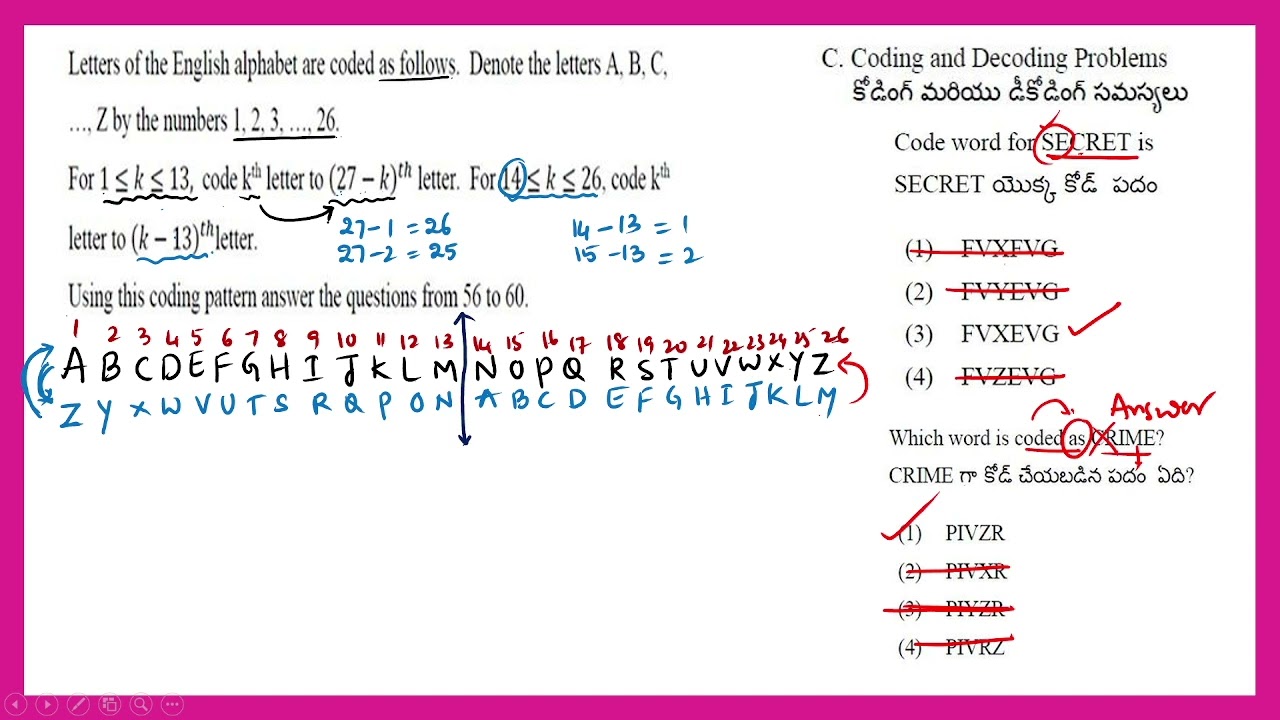 Letters of the English alphabet are coded as follows. Denote the letters A, B, C,
…, Z by the numbers 1, 2, 3, …, 26.
For 1 ≤ k ≤ 13, code kth letter to (27 − k)th letter. For 14 ≤ k ≤ 26, code kth
letter to (k − 13)th letter.
27-1 = 26
27-2 = 25
14-13 = 1
15-13 = 2
Using this coding pattern answer the questions from 56 to 60.
1 2 3 4 5 6 7 8 9 10 11 12 13 14 15 16 17 18 19 20 21 22 23 24 25 26
A B C D E F G H I J K L M N O P Q R S T U V W X Y Z
Z Y X W V U T S R Q P O N A B C D E F G H I J K L M
C. Coding and Decoding Problems
కోడింగ్ మరియు డీకోడింగ్ సమస్యలు
Code word for SECRET is
SECRET యొక్క కోడ్ పదం
(1) FVXFVG
(2) FVYEVG
(3) FVXEVG
(4) FVZEVG
Answer
Which word is coded as CRIME?
CRIME గా కోడ్ చేయబడిన పదం ఏది?
(1) PIVZR
(2) PIVXR
(3) PIYZR
(4) PIVRZ